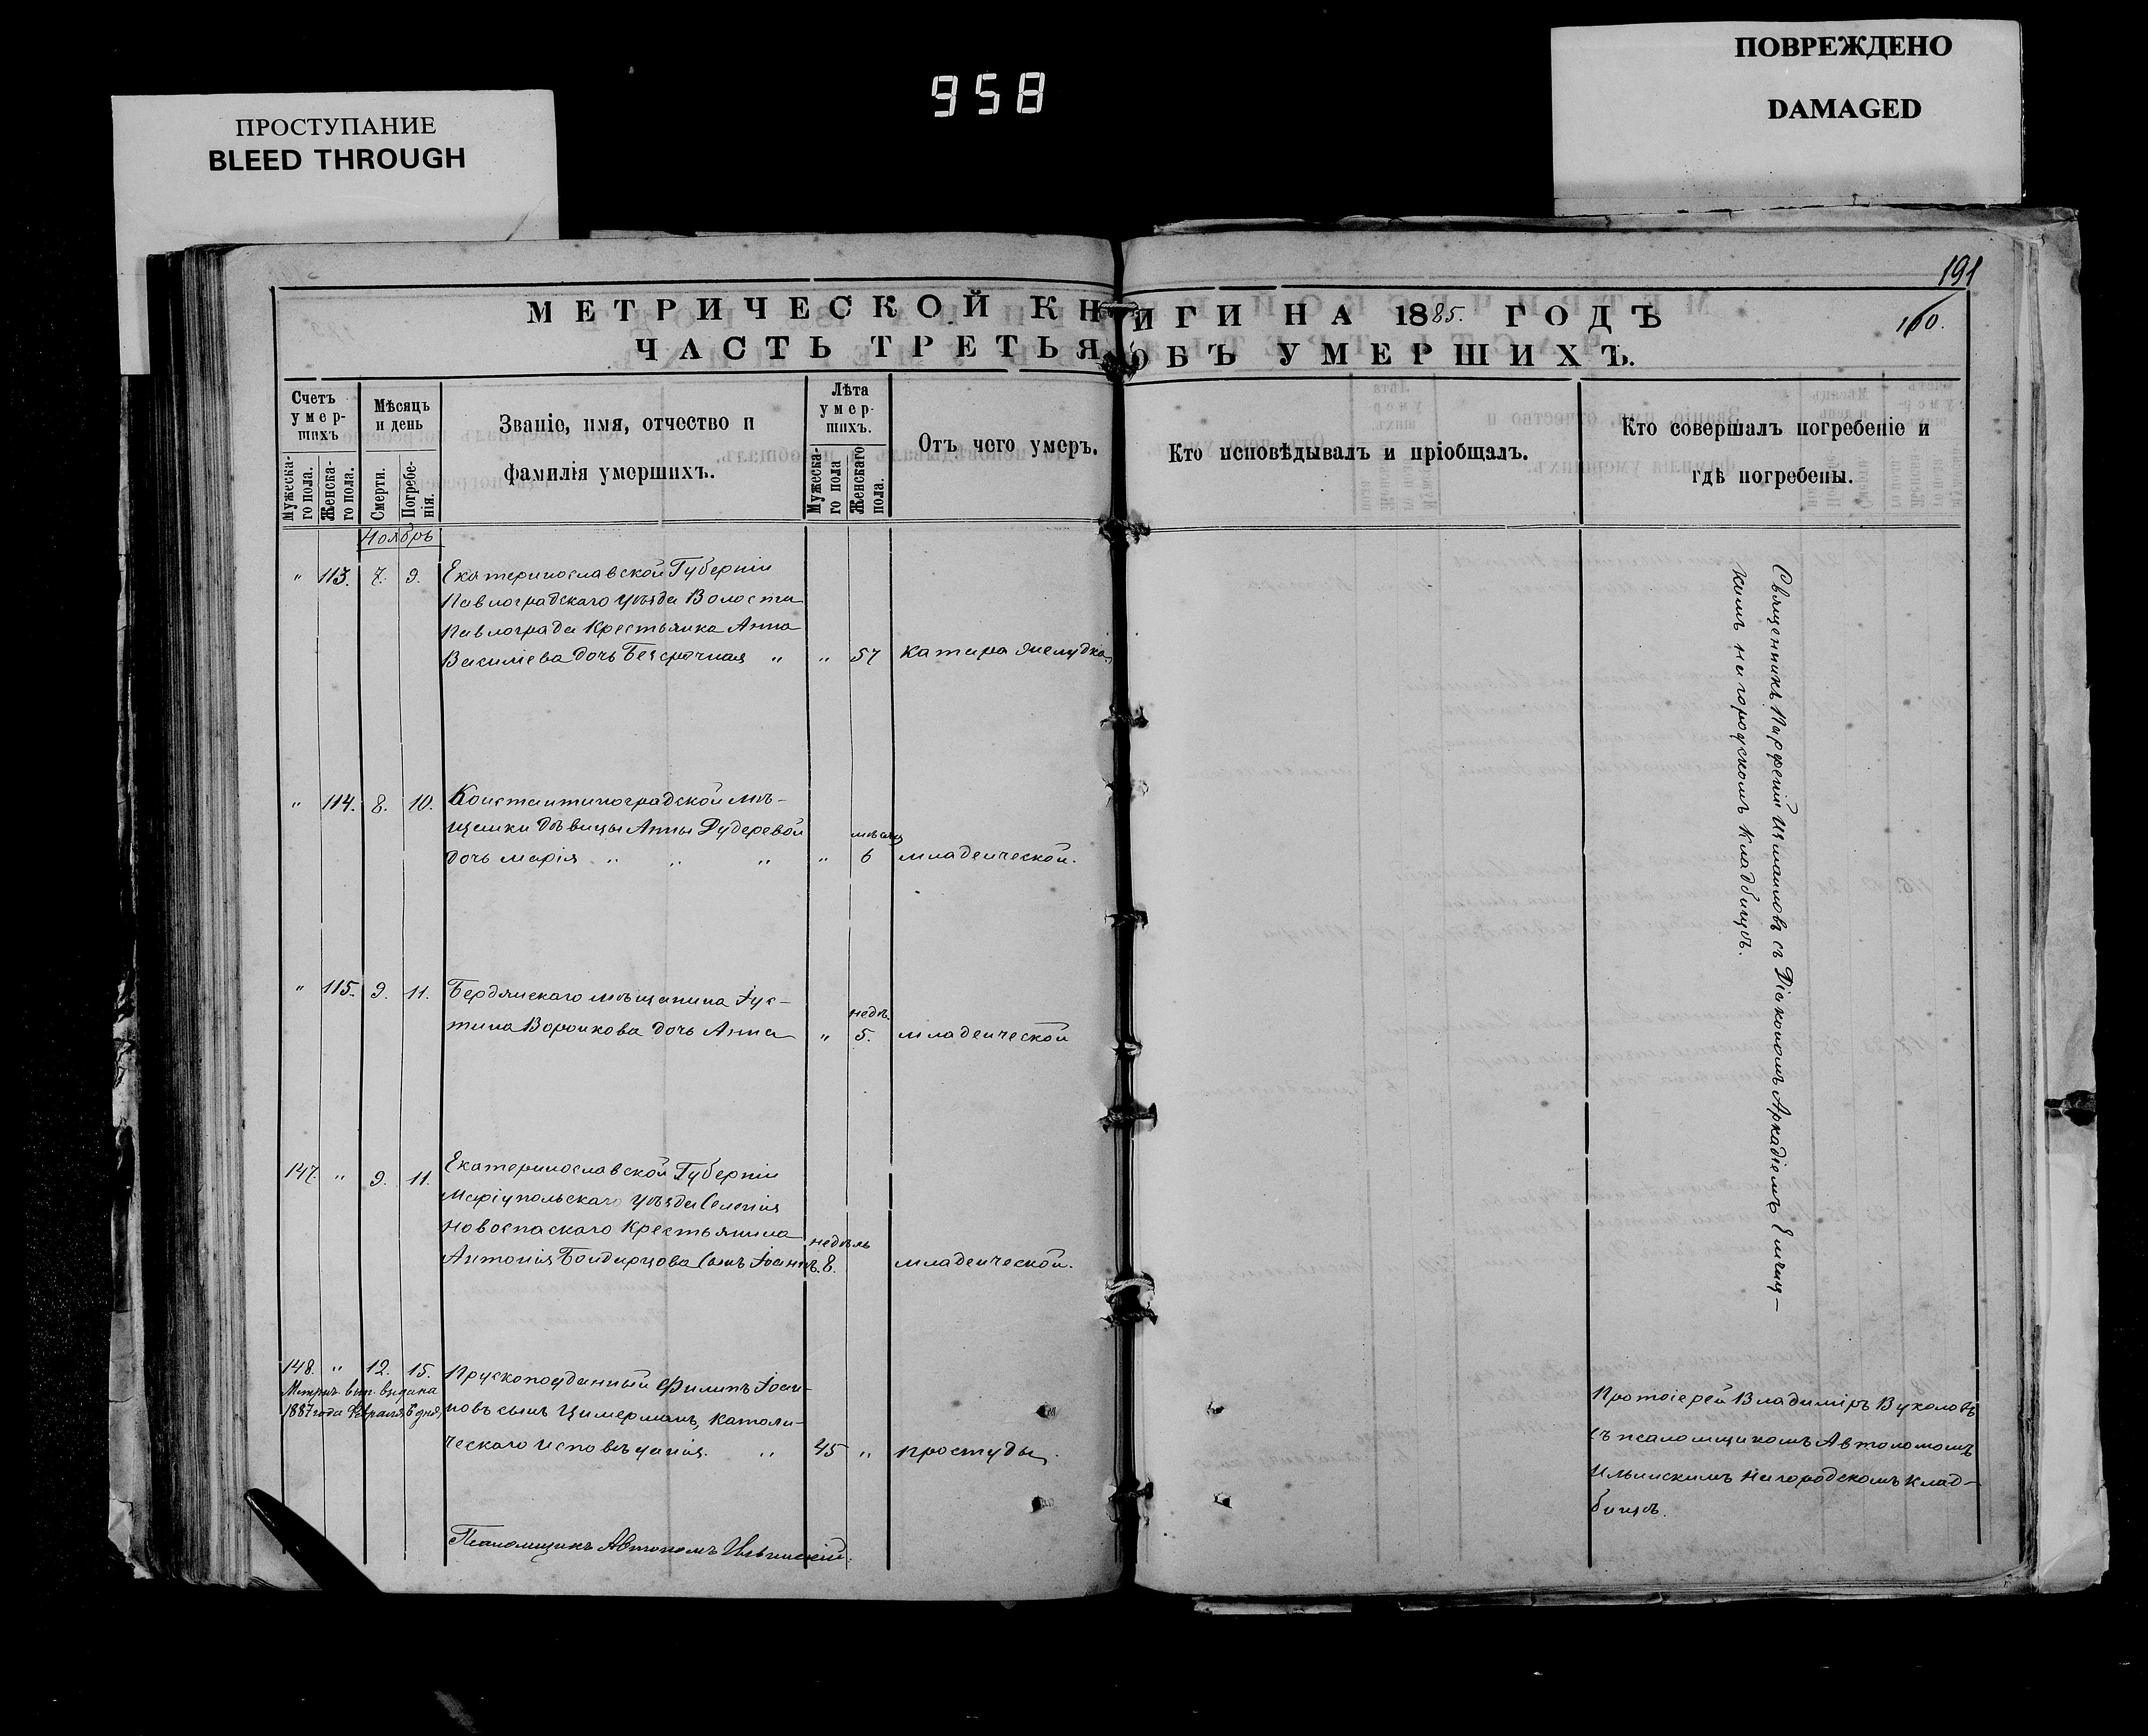 ПРОСТУПАНИЕ
BLEED THROUGH
958
ПОВРЕЖДЕНО
DAMAGED
191
160.
МЕТРИЧЕСКОЙ КНИГИ НА 1885. ГОДЪ
ЧАСТЬ ТРЕТЬЯ ОБЪ УМЕРШИХЪ.
Счетъ умер-шихъ
Мужеска-го пола.
Женска-го пола.
Мѣсяцъ и день
Смерти.
Погребе-нія.
Званіе, имя, отчество и
фамилія умершихъ.
Лѣта умер-шихъ.
Мужеска-го пола
Женскаго пола.
Отъ чего умеръ.
Кто исповѣдывалъ и пріобщалъ.
Кто совершалъ погребеніе и
гдѣ погребены.
Ноябрь
" 113. 7. 9. Екатеринославской Губерніи
Павлоградскаго уѣзда Волости
Павлограда Крестьянка Анна
Василіева дочь Безсрочная " " 57 Катара желудка
" 114. 8. 10. Константиноградской мѣ-
щанки дѣвицы Анны Дудеревой
дочь Марія " " " " мѣсяц 6 младенческой.
" 115. 9. 11. Бердянскаго мѣщанина Іус-
тина Воронкова дочь Анна " недѣ. 5. младенческой
147. " 9. 11. Екатеринославской Губерніи
Маріупольскаго уѣзда Селенія
Новоспаскаго Крестьянина
Антонія Бондарцова Сынъ Іоаннъ. недѣль 8. младенческой.
148. " 12. 15. Прускоподданный Филипъ Іоан-
новъ сынъ Цимерманъ, католи-
ческаго исповѣданія. " 45 " простуды.
Метрич. вып. выдана
1887 года Февраля 6 дня,
Псаломщикъ Автономъ Ильинскій.
Священникъ Парфеній Измаиловъ съ Діакономъ Аркадіемъ
комъ на городскомъ Кладбищѣ.
Протоіерей Владиміръ Вуколовъ
съ псаломщикомъ Автономомъ
Ильинскимъ на городскомъ клад-
бищѣ.